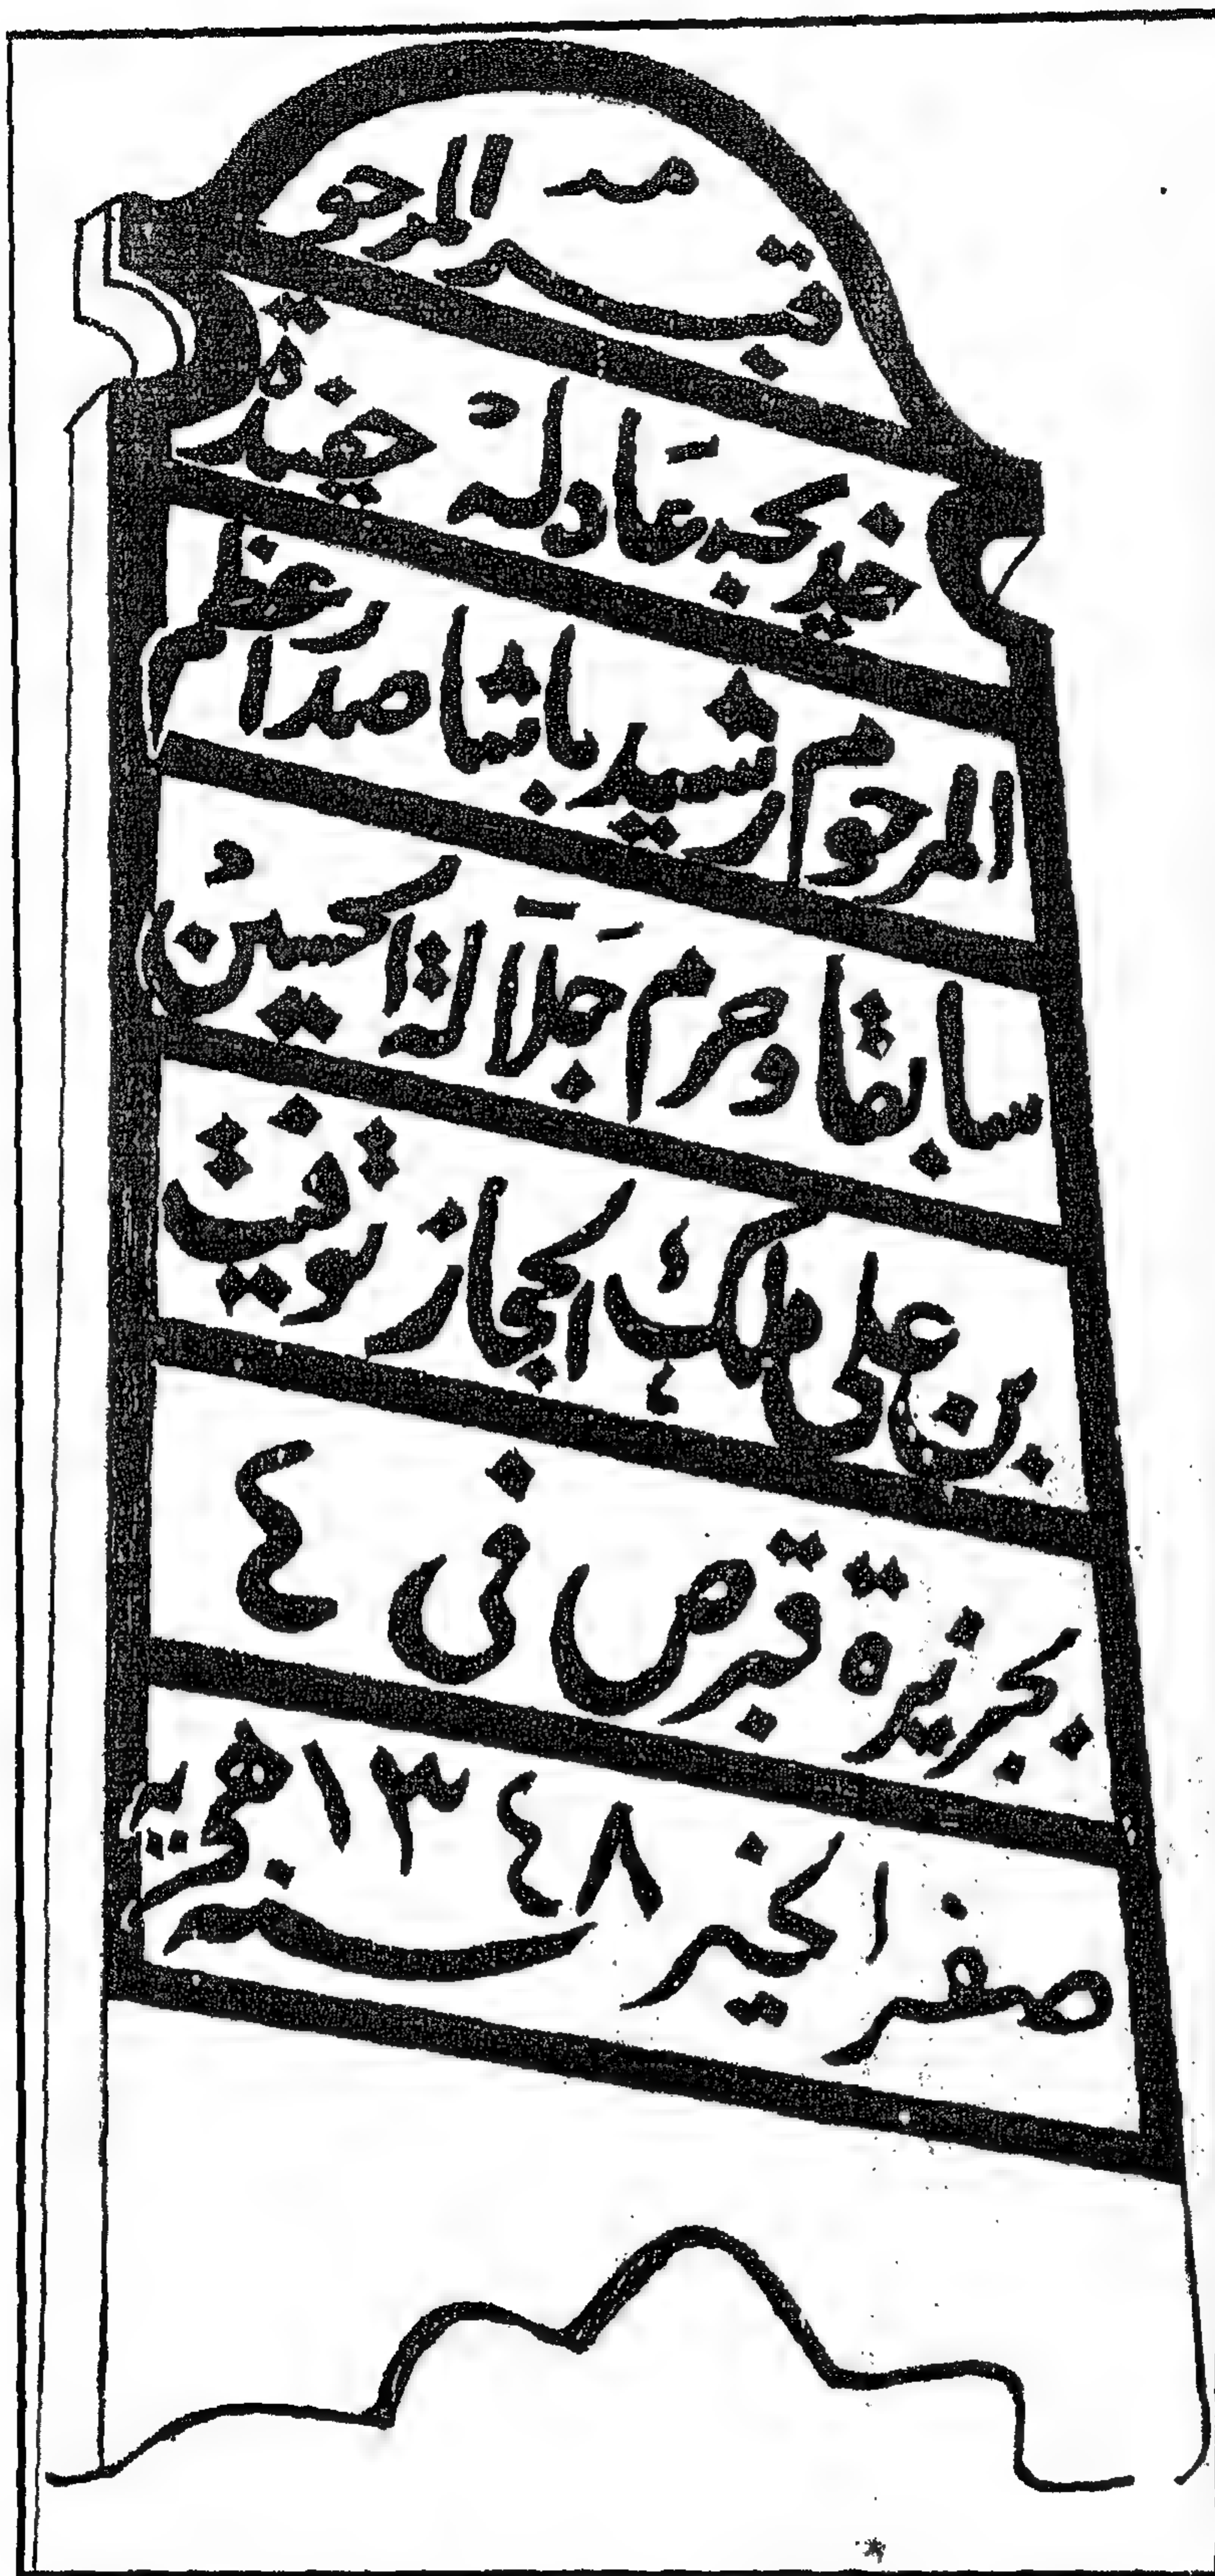 قبر المرحومة
خديجة عادلة حفيدة
المرحوم رشيد باشا صدر اعظم
سابقا وحرم جلالة الحسين
بن علي ملك الحجاز توفيت
بجزيرة قبرص في ٤
صفر الخير ١٣٤٨ سنة هجرية